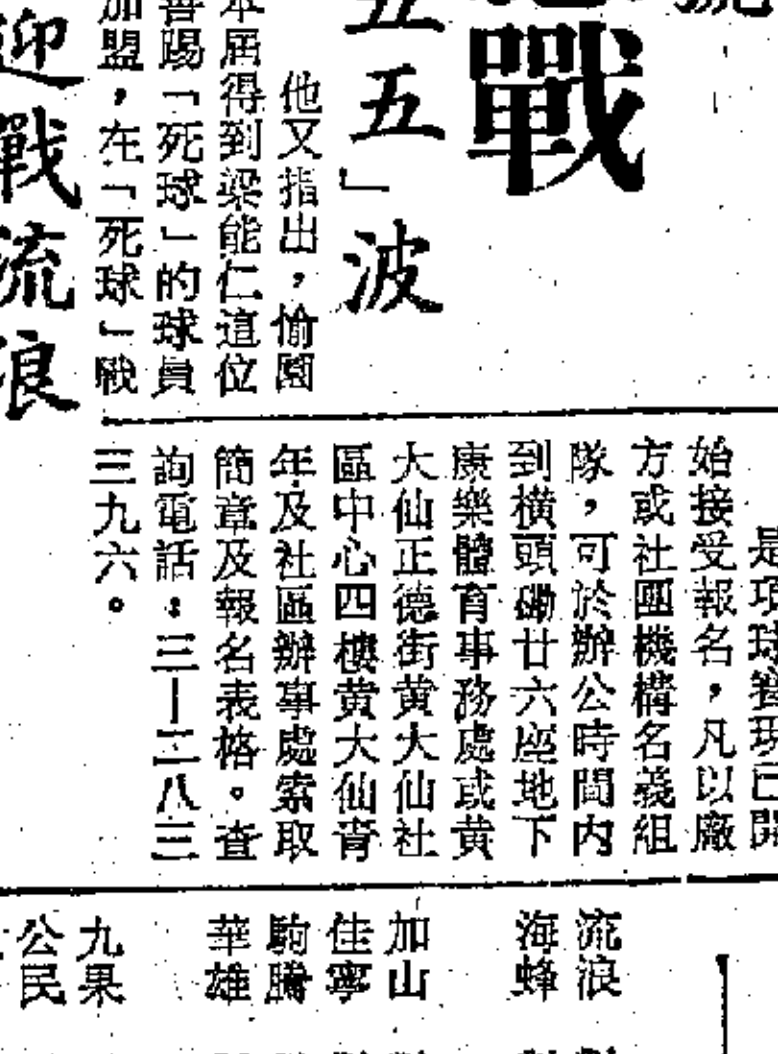 戰
五五」波
他又指出，愉園
本屆得到梁能仁這位
善踢「死球」的球員
加盟，在「死球」戰
迎戰流浪
是項球賽現已開
始接受報名，凡以廠
方或社團機構名義組
隊，可於辦公時間內
到橫頭磡廿六座地下
康樂體育事務處或黃
大仙正德街黃大仙社
區中心四樓黃大仙青
年及社區辦事處索取
簡章及報名表格。查
詢電話：三—二八三
三九六。
流浪
海蜂
加山
佳寧
駒騰
華雄
九果
公民